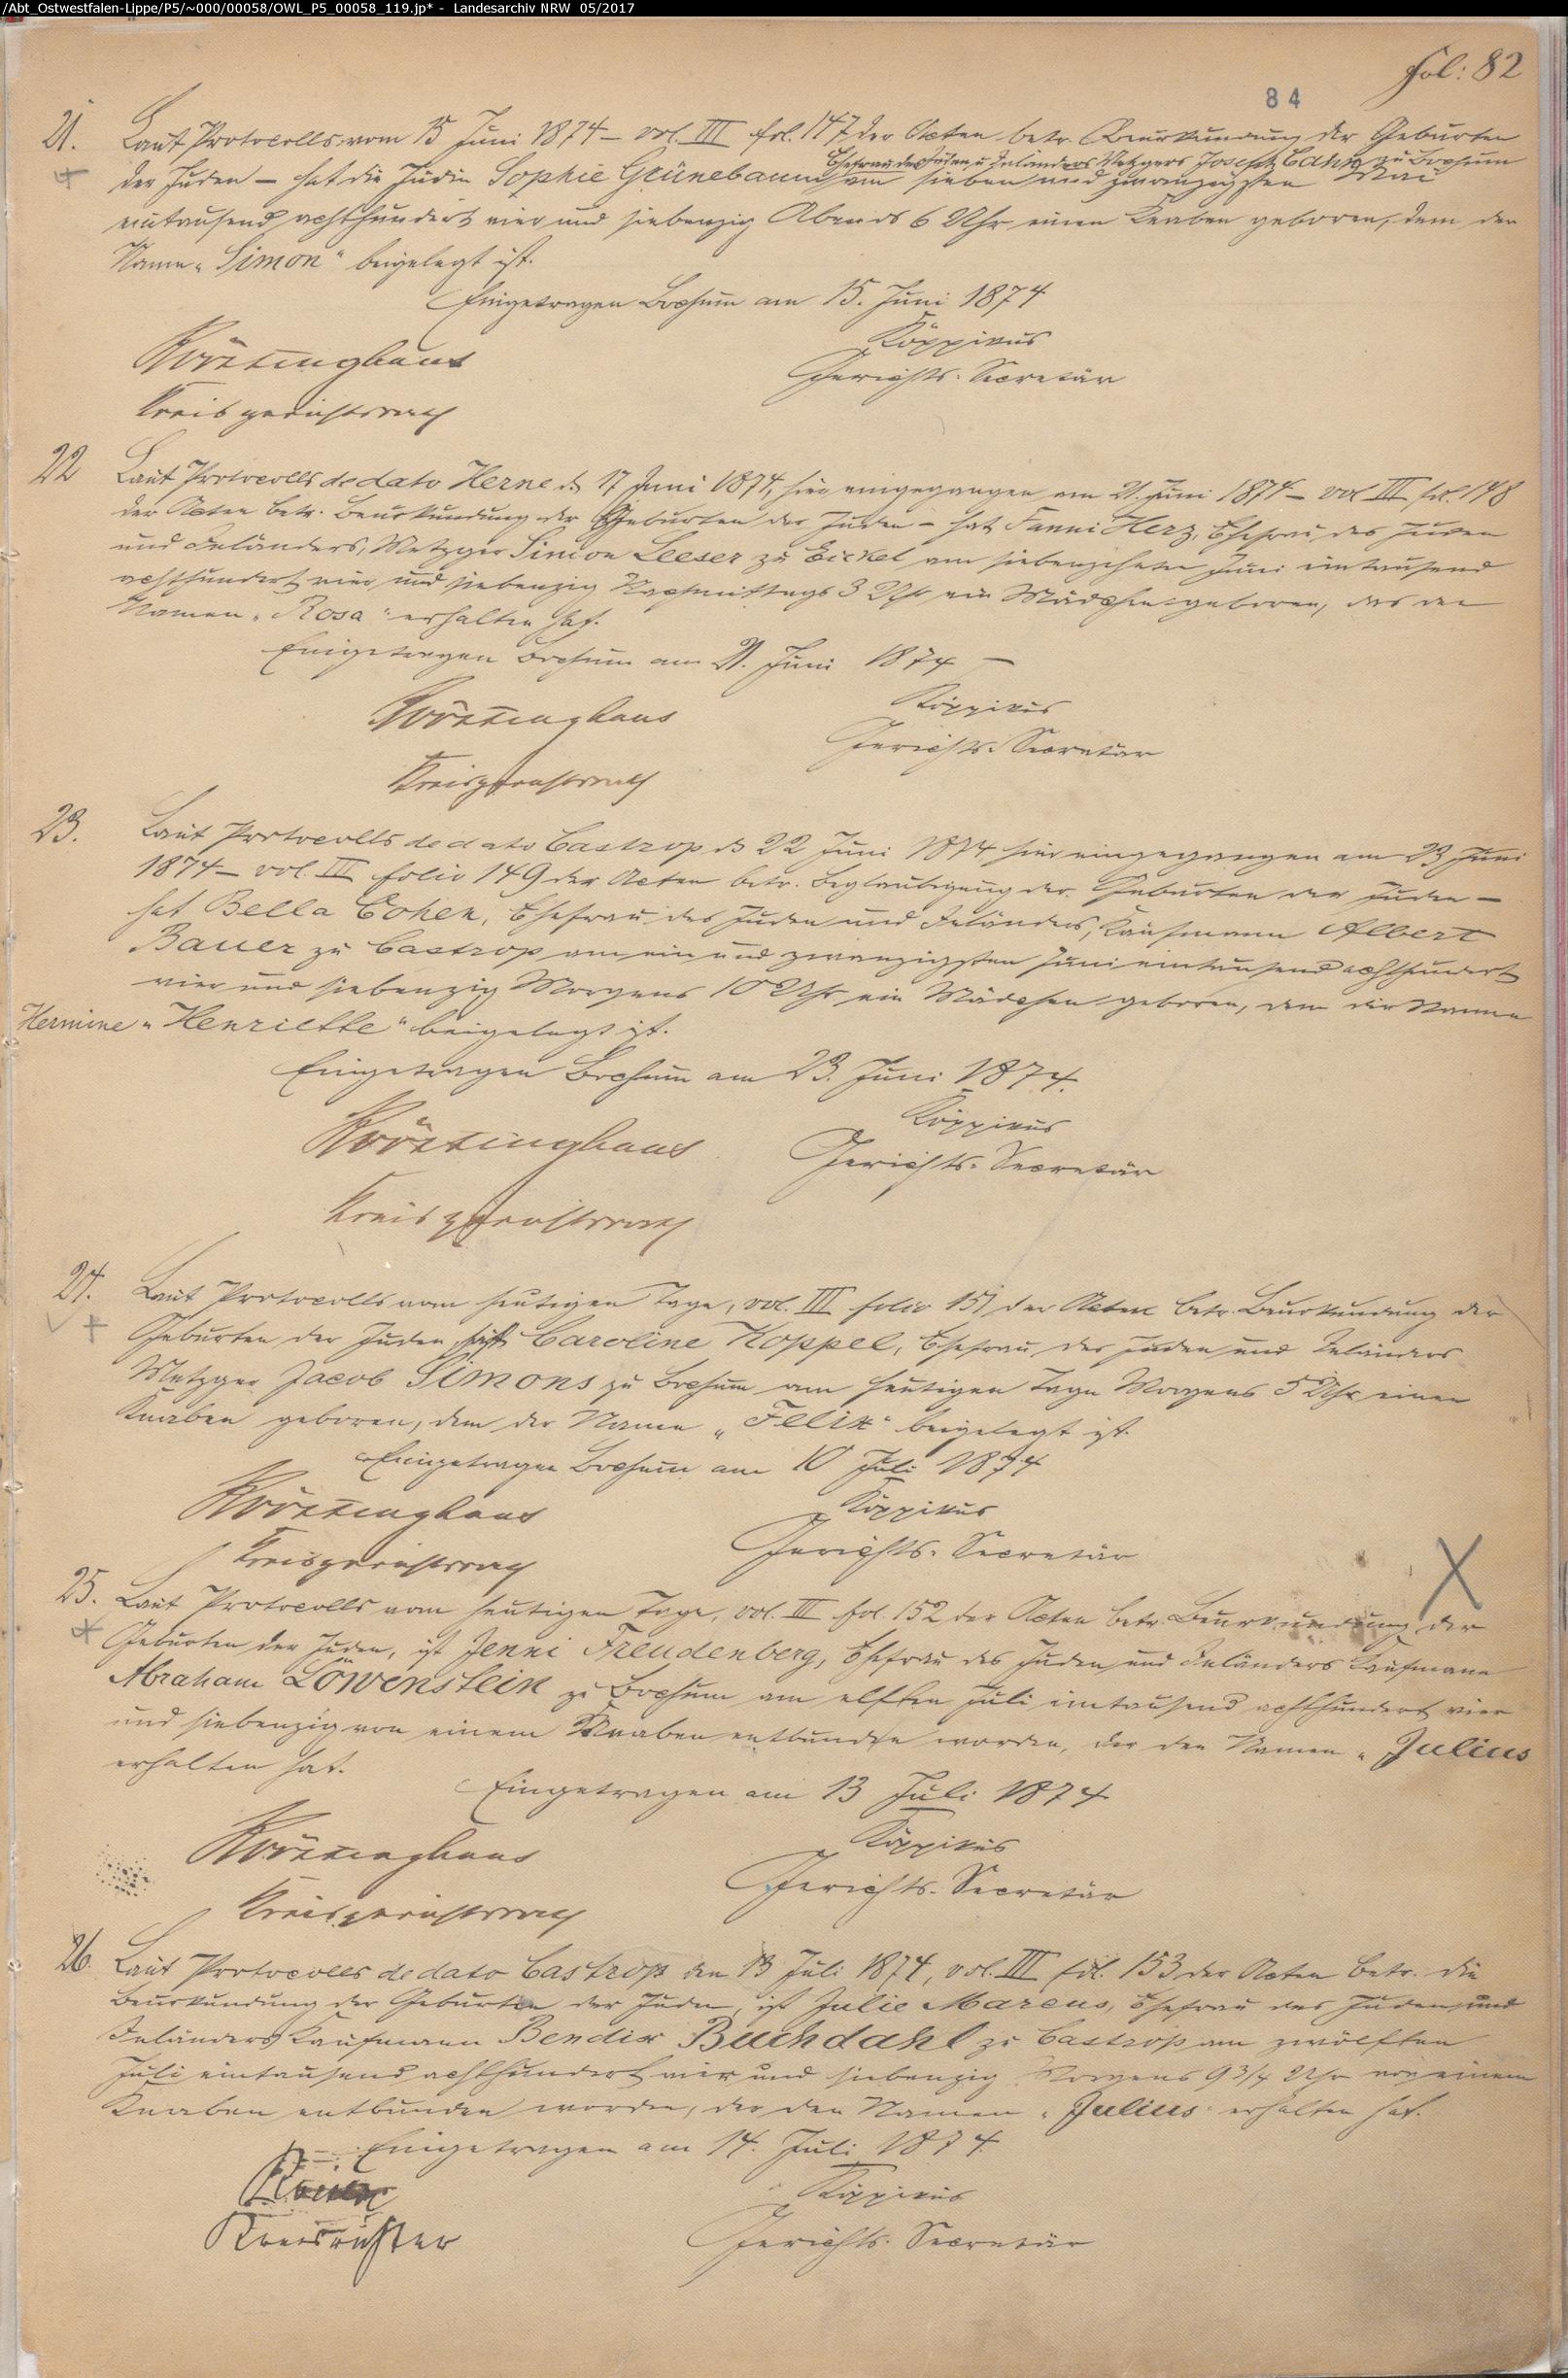 /Abt_Ostwestfalen-Lippe/P5/~000/00058/OWL_P5_00058_119.jp* - Landesarchiv NRW 05/2017
fol: 82
84
21. Laut Protocolls vom 15 Juni 1874 – vol. III fol. 147 der Acten betr. Beurkundung der Geburten
Ehefrau des Juden u Inländers Metzgers Joseph Cahn zu Bochum
der Juden – hat die Jüdin Sophie Grünebaum am sieben und zwanzigsten Mai
eintausend achthundert vier und siebenzig Abends 6 Uhr einen Knaben geboren, dem der
Name „Simon“ beigelegt ist.
Eingetragen Bochum am 15. Juni 1874
Köppikus
Gerichts-Secretär
Kreisgerichtsrath
22 Laut Protocolls de dato Herne d. 17 Juni 1874, hier eingegangen am 21. Juni 1874 – vol III fol. 148
der Acten betr. Beurkundung der Geburten der Juden – hat Fanni Herz, Ehefrau des Juden
und Inländers, Metzger Simon Leeser zu Eickel am siebenzehnten Juni eintausend
achthundert vier und siebenzig Nachmittags 3 Uhr ein Mädchen geboren, das den
Namen „Rosa“ erhalten hat.
Eingetragen Bochum am 21. Juni 1874 –
Köppikus
Gerichts-Secretär
Kreisgerichtsrath
23. Laut Protocolls de dato Castrop d. 22 Juni 1874 hier eingegangen am 23 Juni
1874 – vol. III folio 149 der Acten betr. Beglaubigung der Geburten der Juden –
hat Bella Cohen, Ehefrau des Juden und Inländers, Kaufmann Albert
Bauer zu Castrop am ein und zwanzigsten Juni eintausend achthundert
vier und siebenzig Morgens 10 Uhr ein Mädchen geboren, dem der Name
Hermine „Henriette“ beigelegt ist.
Eingetragen Bochum am 23. Juni 1874.
Köppikus
Gerichts-Secretär
Kreisgerichtsrath
24. Laut Protocolls vom heutigen Tage, vol. III folio 151 der Acten betr. Beurkundung der
Geburten der Juden, hat Caroline Koppel, Ehefrau des Juden und Inländers
Metzger Jacob Simons zu Bochum am heutigen Tage Morgens 5 Uhr einen
Knaben geboren, dem der Name „Felix“ beigelegt ist.
Eingetragen Bochum am 10 Juli 1874
Köppikus
Gerichts-Secretär
Kreisgerichtsrath
25. Laut Protocolls vom heutigen Tage, vol. III fol. 152 der Acten betr. Beurkundung der
Geburten der Juden, ist Jenni Freudenberg, Ehefrau des Juden und Inländers Kaufmann
Abraham Löwenstein zu Bochum am elften Juli eintausend achthundert vier
und siebenzig von einem Knaben entbunden worden, der den Namen „Julius
erhalten hat.
Eingetragen am 13 Juli 1874
Köppikus
Gerichts-Secretär
Kreisgerichtsrath
26. Laut Protocolls de dato Castrop den 13 Juli 1874, vol. III fol. 153 der Acten betr. die
Beurkundung der Geburten der Juden, ist Julie Marcus, Ehefrau des Juden und
Inländers Kaufmann Bendix Buchdahl zu Castrop am zwölften
Juli eintausend achthundert vier und siebenzig Morgens 9 3/4 Uhr von einem
Knaben entbunden worden, der den Namen „Julius“ erhalten hat.
Eingetragen am 14. Juli 1874.
Köppikus
Kreisrichter
Gerichts-Secretär